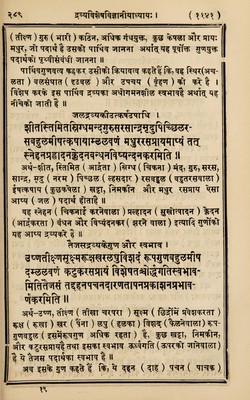 २८९ द्रव्यविशेषविज्ञानीयाध्यायः। (११४१)
(तीक्ष्ण) गुरु (भारी) कठिन, अधिक गंधयुक्त, कुछ कषेला और प्रायः
मधुर, जो पदार्थ है उसको पार्थिव जानना अर्थात् यह पूर्वोक्त गुणयुक्त
पदार्थको पृथ्वीसंबंधी जानना ॥
पार्थिवगुणवत्व कहकर उसीकी क्रियाको कहते हैं कि, वह स्थिर(अच-
लता) बलसंघात (दृढबल) और उपचय (बृंहण) की करे है।
विशेष करके इस पार्थिव द्रव्यका अधोगमनशील स्वभावहै अर्थात् यह
नीचेको जाती है ॥
जलद्रव्यकीउत्कर्षपार्थी।
शीतस्तिमितस्निग्धमन्दगुरुसरसान्द्रमृदुपिच्छिलर-
सबहुलमीषत्कषायाम्ललवणं मधुररसप्रायमाप्यं तत्
स्नेहनप्रह्लादनक्लेदनबन्धनविष्यन्दनकरमिति ॥
अर्थ-शीतल, स्तिमित (आर्द्र) स्निग्ध (चिकना) मंद, गुरु, सरस,
सान्द्र, मृदु (नरम) पिच्छिल (ल्हेसदार) रसबहुल (बहुतरसवाला)
ईषत्कषाय (कुछकषेला) खट्टा, निमकीन और मधुर रसप्राय ऐसा
आप्य (जल) पदार्थ होताहै ॥
यह स्नेहन (चिकनाई करनेवाला) प्रह्लादन (सुखोत्पादन) क्लेदन
(आर्द्रकरता) बंधन और विष्यंदनकर (झरने वाला) इत्यादि गुणोंको
यह आप्य द्रव्यकरे है ॥
तैजसद्रव्यकेगुण और स्वभाव।
उष्णतीक्ष्णसूक्ष्मरूक्षखरलघुविशदं रूपगुणबहुलमीष
दम्ललवणं कटुकरसप्रायं विशेषतश्चोर्द्ध्वगतिस्वभाव-
मितितैजसं तद्दहनपचनदारणतापनप्रकाशनप्रभाव-
र्णकरमिति ॥
अर्थ-उष्ण, तीक्ष्ण (तीखा चरपरा) सूक्ष्म (छिद्रोंमें प्रवेशकरता)
रूक्ष (रूखा) खर (पैंना) लघु (हलका) विशद (फैलनेवाला) रूप-
गुणबहुल (इसमेंरूपगुण अधिक रहता) है. कुछ खट्टा, निमकीन
और कटुरसप्रायहै तथा इसका स्वभाव ऊर्ध्वगति (ऊपरको जानेवाला)
है ये तैजस पदार्थका स्वभाव है ॥
अब इसके गुण कहते हैं कि, ये दहन (दाह) पचन (पाचक)
१९